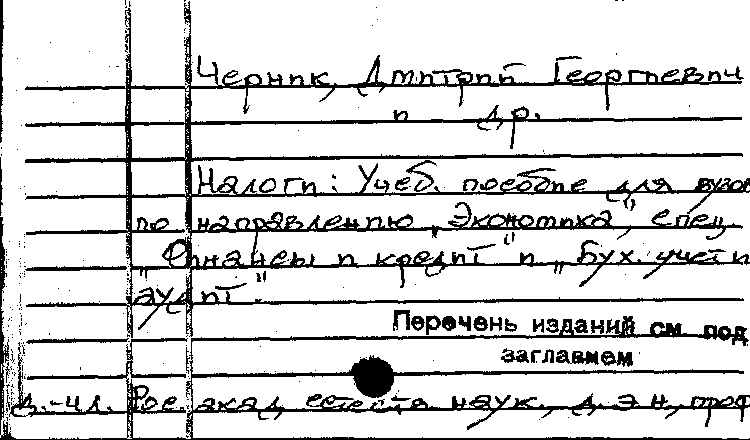 Черник, Дмитрий Георгиевич
и др.
Налоги: Учеб. пособие для вузов
по направлению „Экономика", спец.
„Финансы и кредит" и „Бух. учет и
аудит".
Перечень изданий см. под
заглавием
д.-чл. Рос. акад. естеств. наук., д.э.н., проф